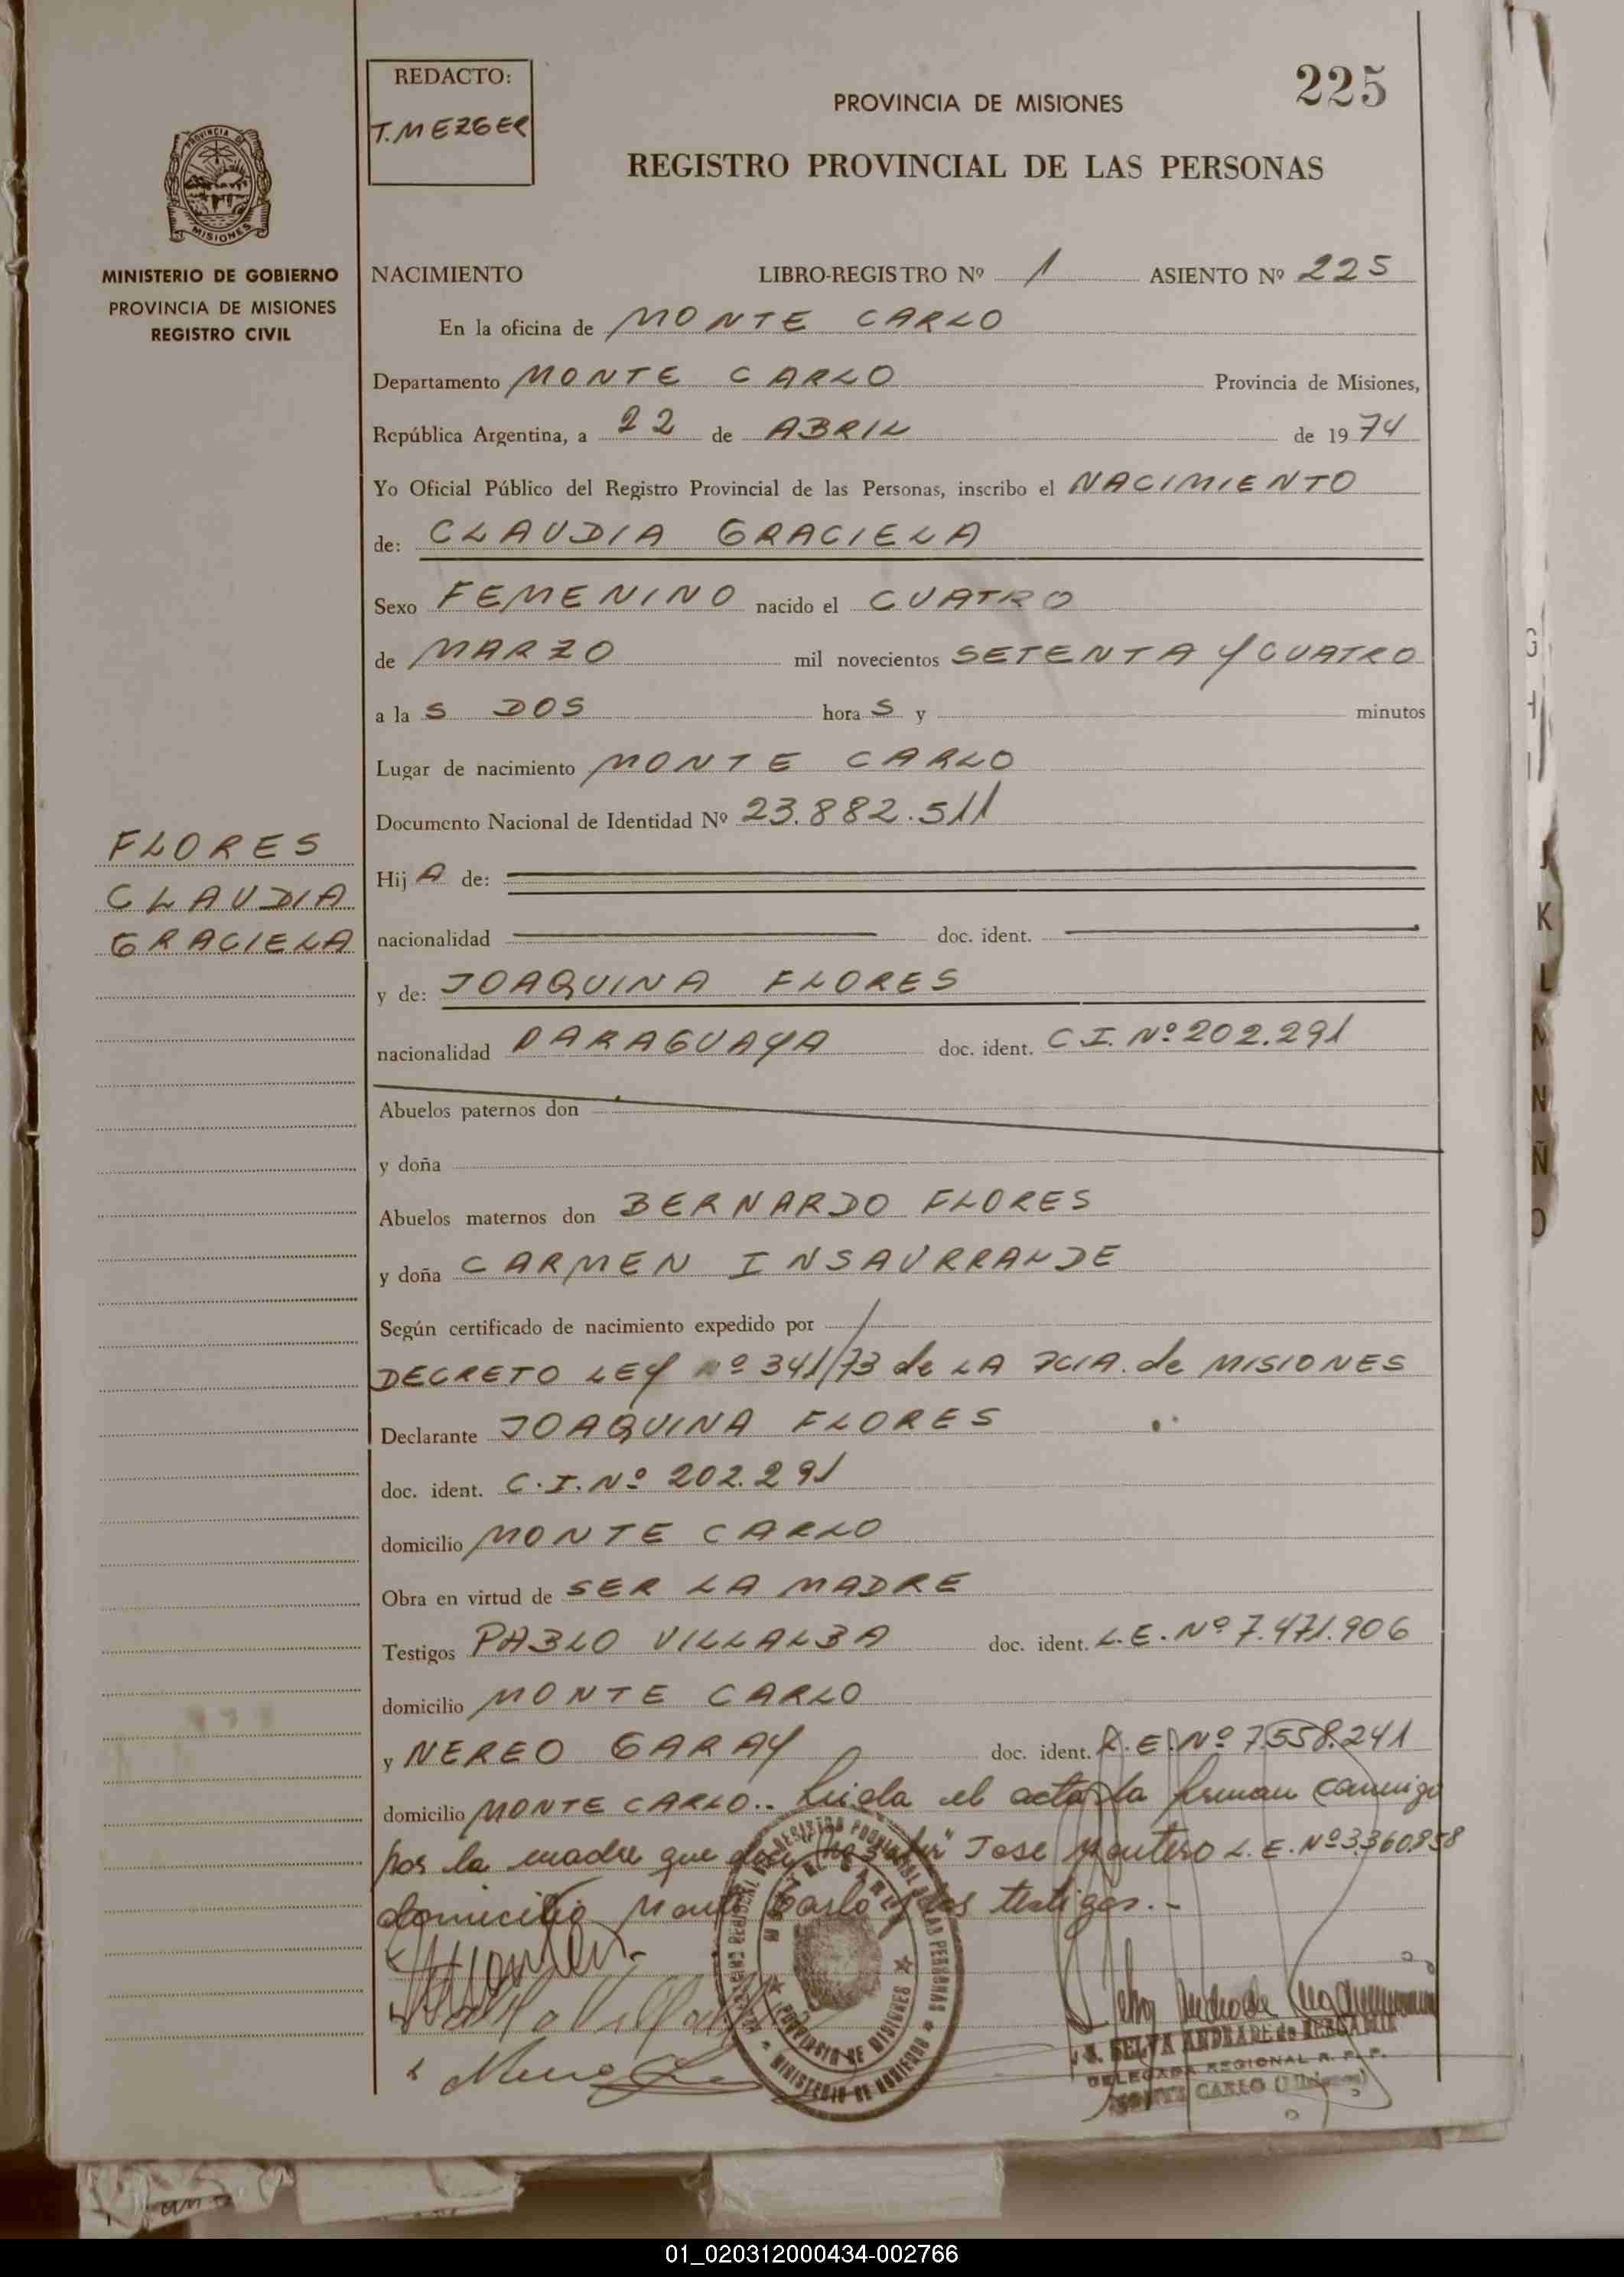 225
REDACTO:
T. MEZGER
PROVINCIA DE MISIONES
REGISTRO PROVINCIAL DE LAS PERSONAS
PROVINCIA DE
MISIONES
MINISTERIO DE GOBIERNO
PROVINCIA DE MISIONES
REGISTRO CIVIL
NACIMIENTO LIBRO-REGISTRO Nº 1 ASIENTO Nº 225
En la oficina de MONTE CARLO
Departamento MONTE CARLO Provincia de Misiones,
República Argentina, a 22 de ABRIL de 1974
Yo Oficial Público del Registro Provincial de las Personas, inscribo el NACIMIENTO
de: CLAUDIA GRACIELA
Sexo FEMENINO nacido el CUATRO
de MARZO mil novecientos SETENTA Y CUATRO
a las DOS horas y minutos
Lugar de nacimiento MONTE CARLO
Documento Nacional de Identidad Nº 23.882.511
FLORES
CLAUDIA
GRACIELA
Hij A de:
nacionalidad doc. ident.
y de: JOAQUINA FLORES
nacionalidad PARAGUAYA doc. ident. C.I. Nº 202.291
Abuelos paternos don
y doña
Abuelos maternos don BERNARDO FLORES
y doña CARMEN INSAURRALDE
Según certificado de nacimiento expedido por /
DECRETO LEY Nº 341/73 de LA PCIA. de MISIONES
Declarante JOAQUINA FLORES
doc. ident. C.I. Nº 202.291
domicilio MONTE CARLO
Obra en virtud de SER LA MADRE
Testigos PABLO VILLALBA doc. ident. L.E. Nº 7.471.906
domicilio MONTE CARLO
y NEREO GARAY doc. ident. L.E. Nº 7.558.241
domicilio MONTE CARLO.. Leida el acta la firman conmigo
por la madre que dice "no saber" Jose Montero L.E. Nº 3.360.858
domicilio Monte Carlo y los testigos.-
REGISTRO PROVINCIAL DE LAS PERSONAS
MONTE CARLO
PROVINCIA DE MISIONES
MINISTERIO DE GOBIERNO
SELVA ANDRADE de
DELEGADA REGIONAL R. P. P.
MONTE CARLO (Misiones)
G
H
I
J
K
L
M
N
Ñ
O
01_020312000434-002766